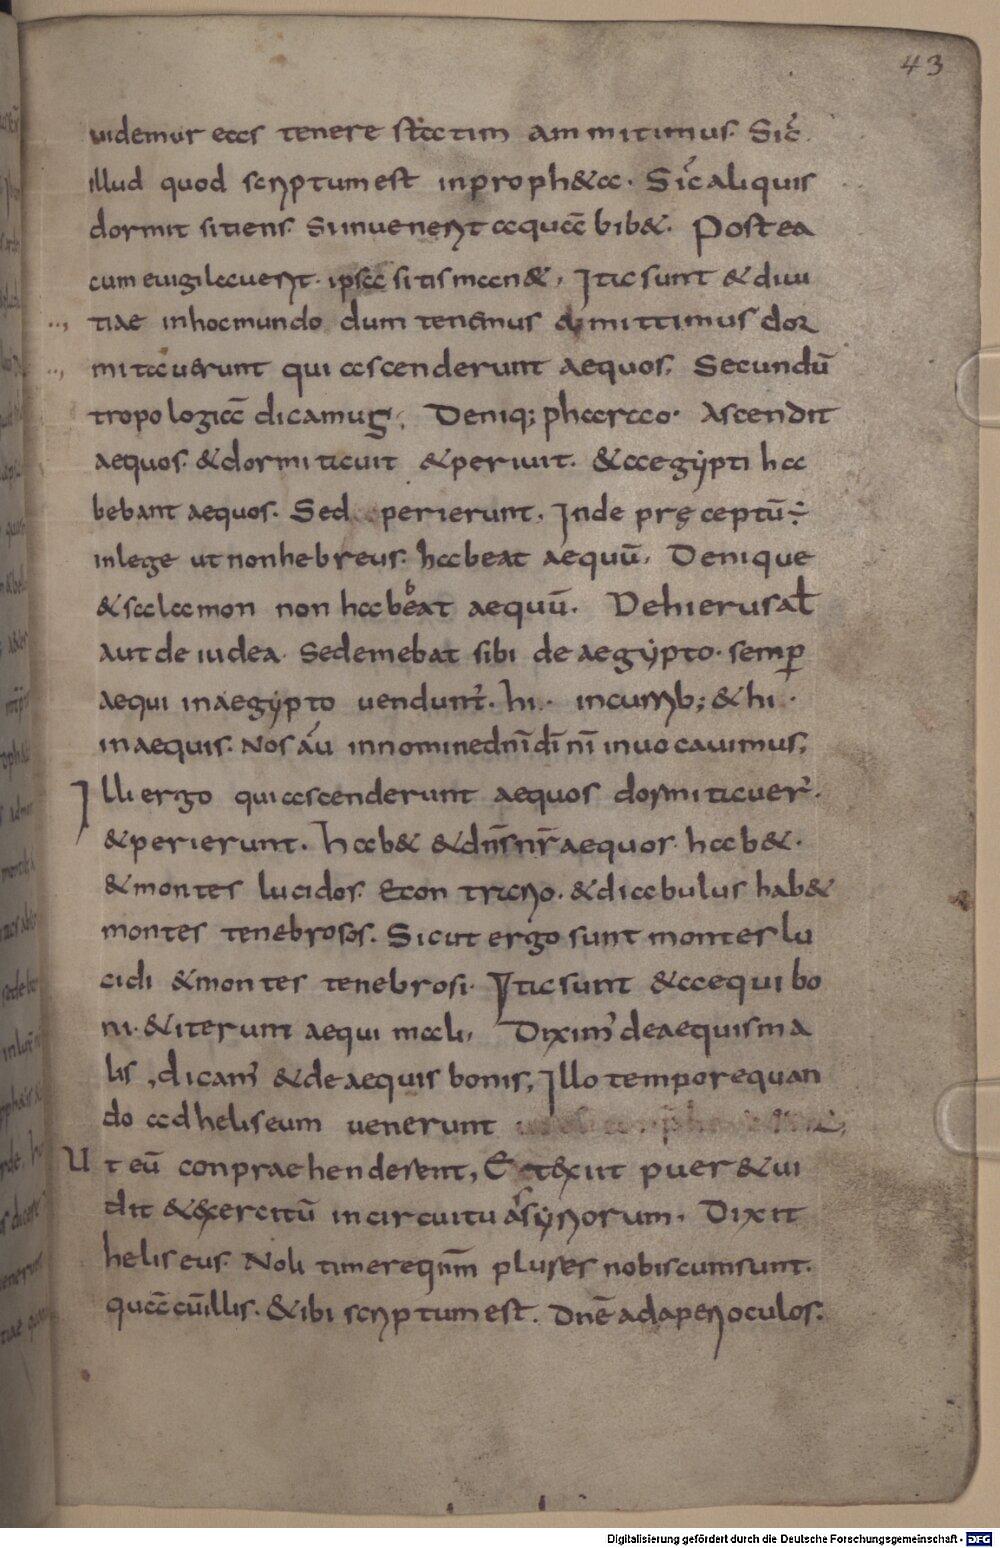 43
uidemur eas tenere statim ammitimus. Sic̄.
illud quod scriptum est in proph&a. Sic aliquis
dormit sitiens. Si inuenerit aquā bib&. Postea
cum euigilauerit. ipsa sitis man&. Ita sunt & diui
tiae in hoc mundo dum tenemus ammittimus dor
mitauerunt qui ascenderunt aequos. Secundū
tropologiā dicamus. Deniq; pharao. Ascendit
aequos. & dormitauit & periuit. & aegypti ha
bebant aequos. Sed perierunt. Inde pręceptū ÷
in lege ut non hebreus. habeat aequū. Denique
& salamon non habeat aequū. De hierusal̄
aut de iudea. Sed emebat sibi de aegypto. semp̄
aequi in aegypto uendunt̄. hi. in currib; & hi.
in aequis. Nos áu in nomine dn̄i dī nī inuocauimus.
Illi ergo qui ascenderunt aequos dormitauer̄.
& perierunt. hab& & dn̄s nr̄ aequos. hab&.
& montes lucidos. Econtrario. & diabulus hab&
montes tenebrosos. Sicut ergo sunt montes lu
cidi & montes tenebrosi. Ita sunt & aequi bo
ni. & iterum aequi mali. Diximꝰ de aequis ma
lis, dicamꝰ & de aequis bonis. Illo tempore quan
do ad heliseum uenerunt
Ut eū conpraehenderent, Et exiit puer & ui
dit & exercitū in circuitu assyriorum. Dixit
heliseus. Noli timere qn̄m plures nobiscum sunt.
quā cū illis. & ibi scriptum est. Dn̄e adaperi oculos.
Digitalisierung gefördert durch die Deutsche Forschungsgemeinschaft - DFG